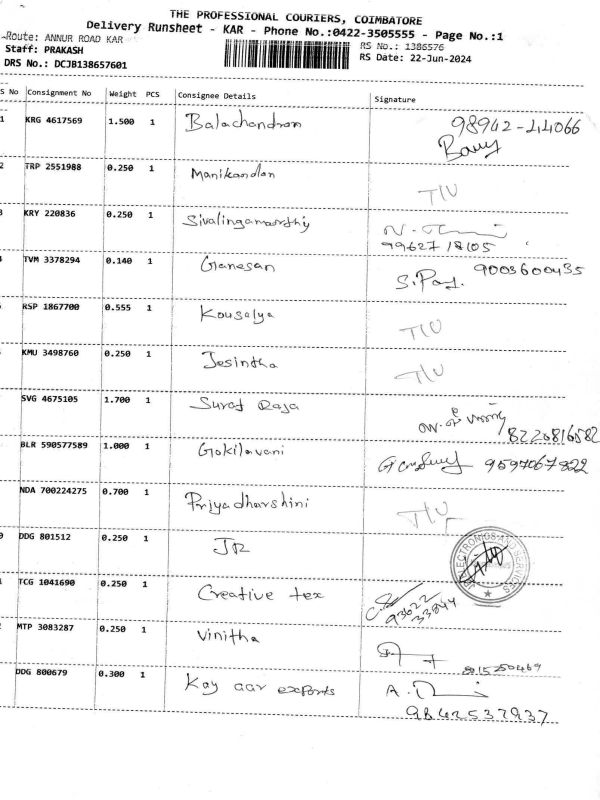 THE PROFESSIONAL COURIERS, COIMBATORE
Delivery Runsheet - KAR - Phone No.:0422-3505555 - Page No.:1
Route: ANNUR ROAD KAR
RS No.: 1386576
Staff: PRAKASH
RS Date: 22-Jun-2024
DRS No.: DCJB138657601
S No Consignment No Weight PCS Consignee Details Signature
1 KRG 4617569 1.500 1 Balachandran 98942-44066
2 TRP 2551988 0.250 1 Manikandan
3 KRY 220836 0.250 1 Sivalingamoorthy
99627 18105
TVM 3378294 0.140 1 Ganesan 9003600435
RSP 1867700 0.555 1 Kousalya
KMU 3498760 0.250 1 Jesintha
SVG 4675105 1.700 1 Suraj Raja
8220816582
BLR 590577589 1.000 1 Gokilavani 9597067822
NDA 700224275 0.700 1 Priyadharshini
DDG 801512 0.250 1 JR
TCG 1041690 0.250 1 Creative tex
93622
33844
MTP 3083287 0.250 1 Vinitha
DDG 800679 0.300 1 Kay aar exports
9842537937